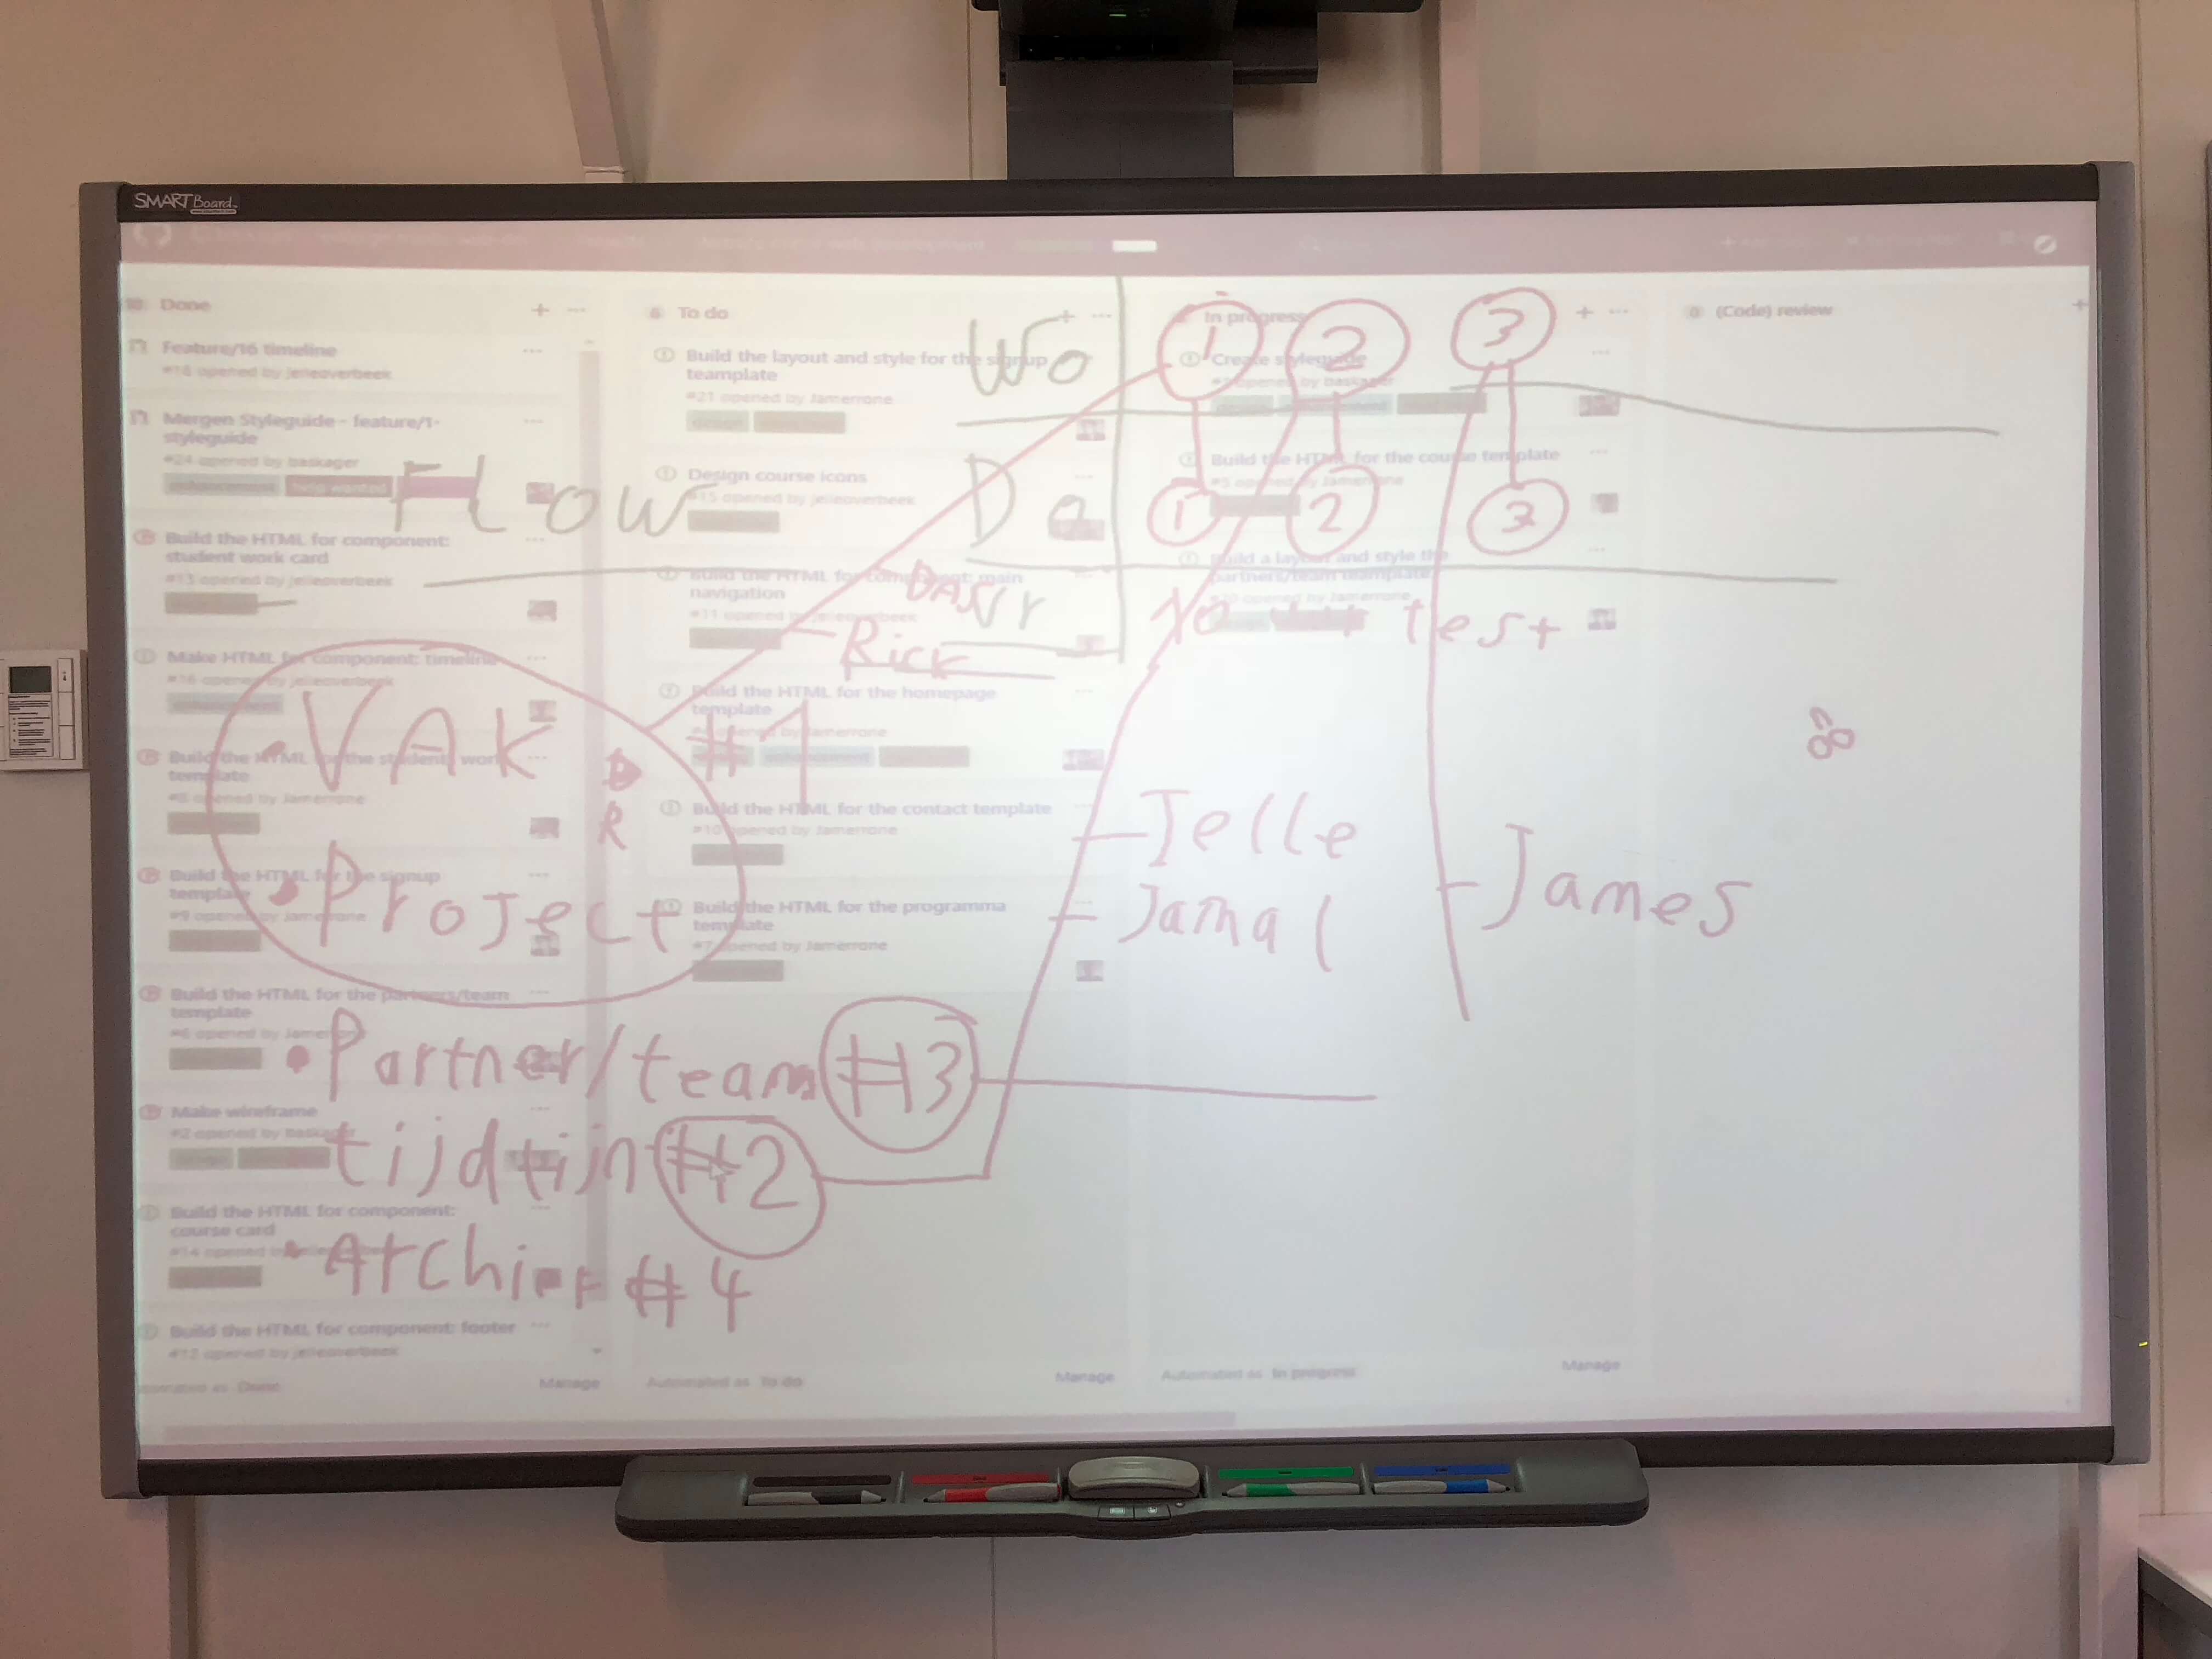 SMART Board
Done
Feature/16 timeline
#18 opened by jelleoverbeek
Mergen Styleguide - feature/1-
styleguide
#24 opened by baskager
help wanted
Build the HTML for component:
student work card
#13 opened by jelleoverbeek
Make HTML for component: timeline
#16 opened by jelleoverbeek
Build the HTML for the student work
template
#8 opened by Jamerrone
Build the HTML for the signup
template
#9 opened by Jamerrone
Build the HTML for the partners/team
template
#6 opened by Jamerrone
Make wireframe
#2 opened by baskager
Build the HTML for component:
course card
#14 opened by jelleoverbeek
Build the HTML for component: footer
#12 opened by jelleoverbeek
Automated as Done
Manage
6 To do
Build the layout and style for the signup
teamplate
#21 opened by Jamerrone
design
Design course icons
#15 opened by jelleoverbeek
Build the HTML for component: main
navigation
#11 opened by jelleoverbeek
Build the HTML for the homepage
template
opened by Jamerrone
enhancement
Build the HTML for the contact template
#10 opened by Jamerrone
Build the HTML for the programma
template
#7 opened by Jamerrone
Automated as To do
Manage
In progress
Create styleguide
opened by baskager
Build the HTML for the course template
#5 opened by Jamerrone
Build a layout and style the
partners/team teamplate
opened by Jamerrone
Automated as In progress
Manage
0 (Code) review
Wo
1 2 3
Flow
Do
1 2 3
Rick
test
VAK
#1
D
R
Project
Jelle
Jamal
James
Partner/team #3
tijdlijn #2
Archief #4